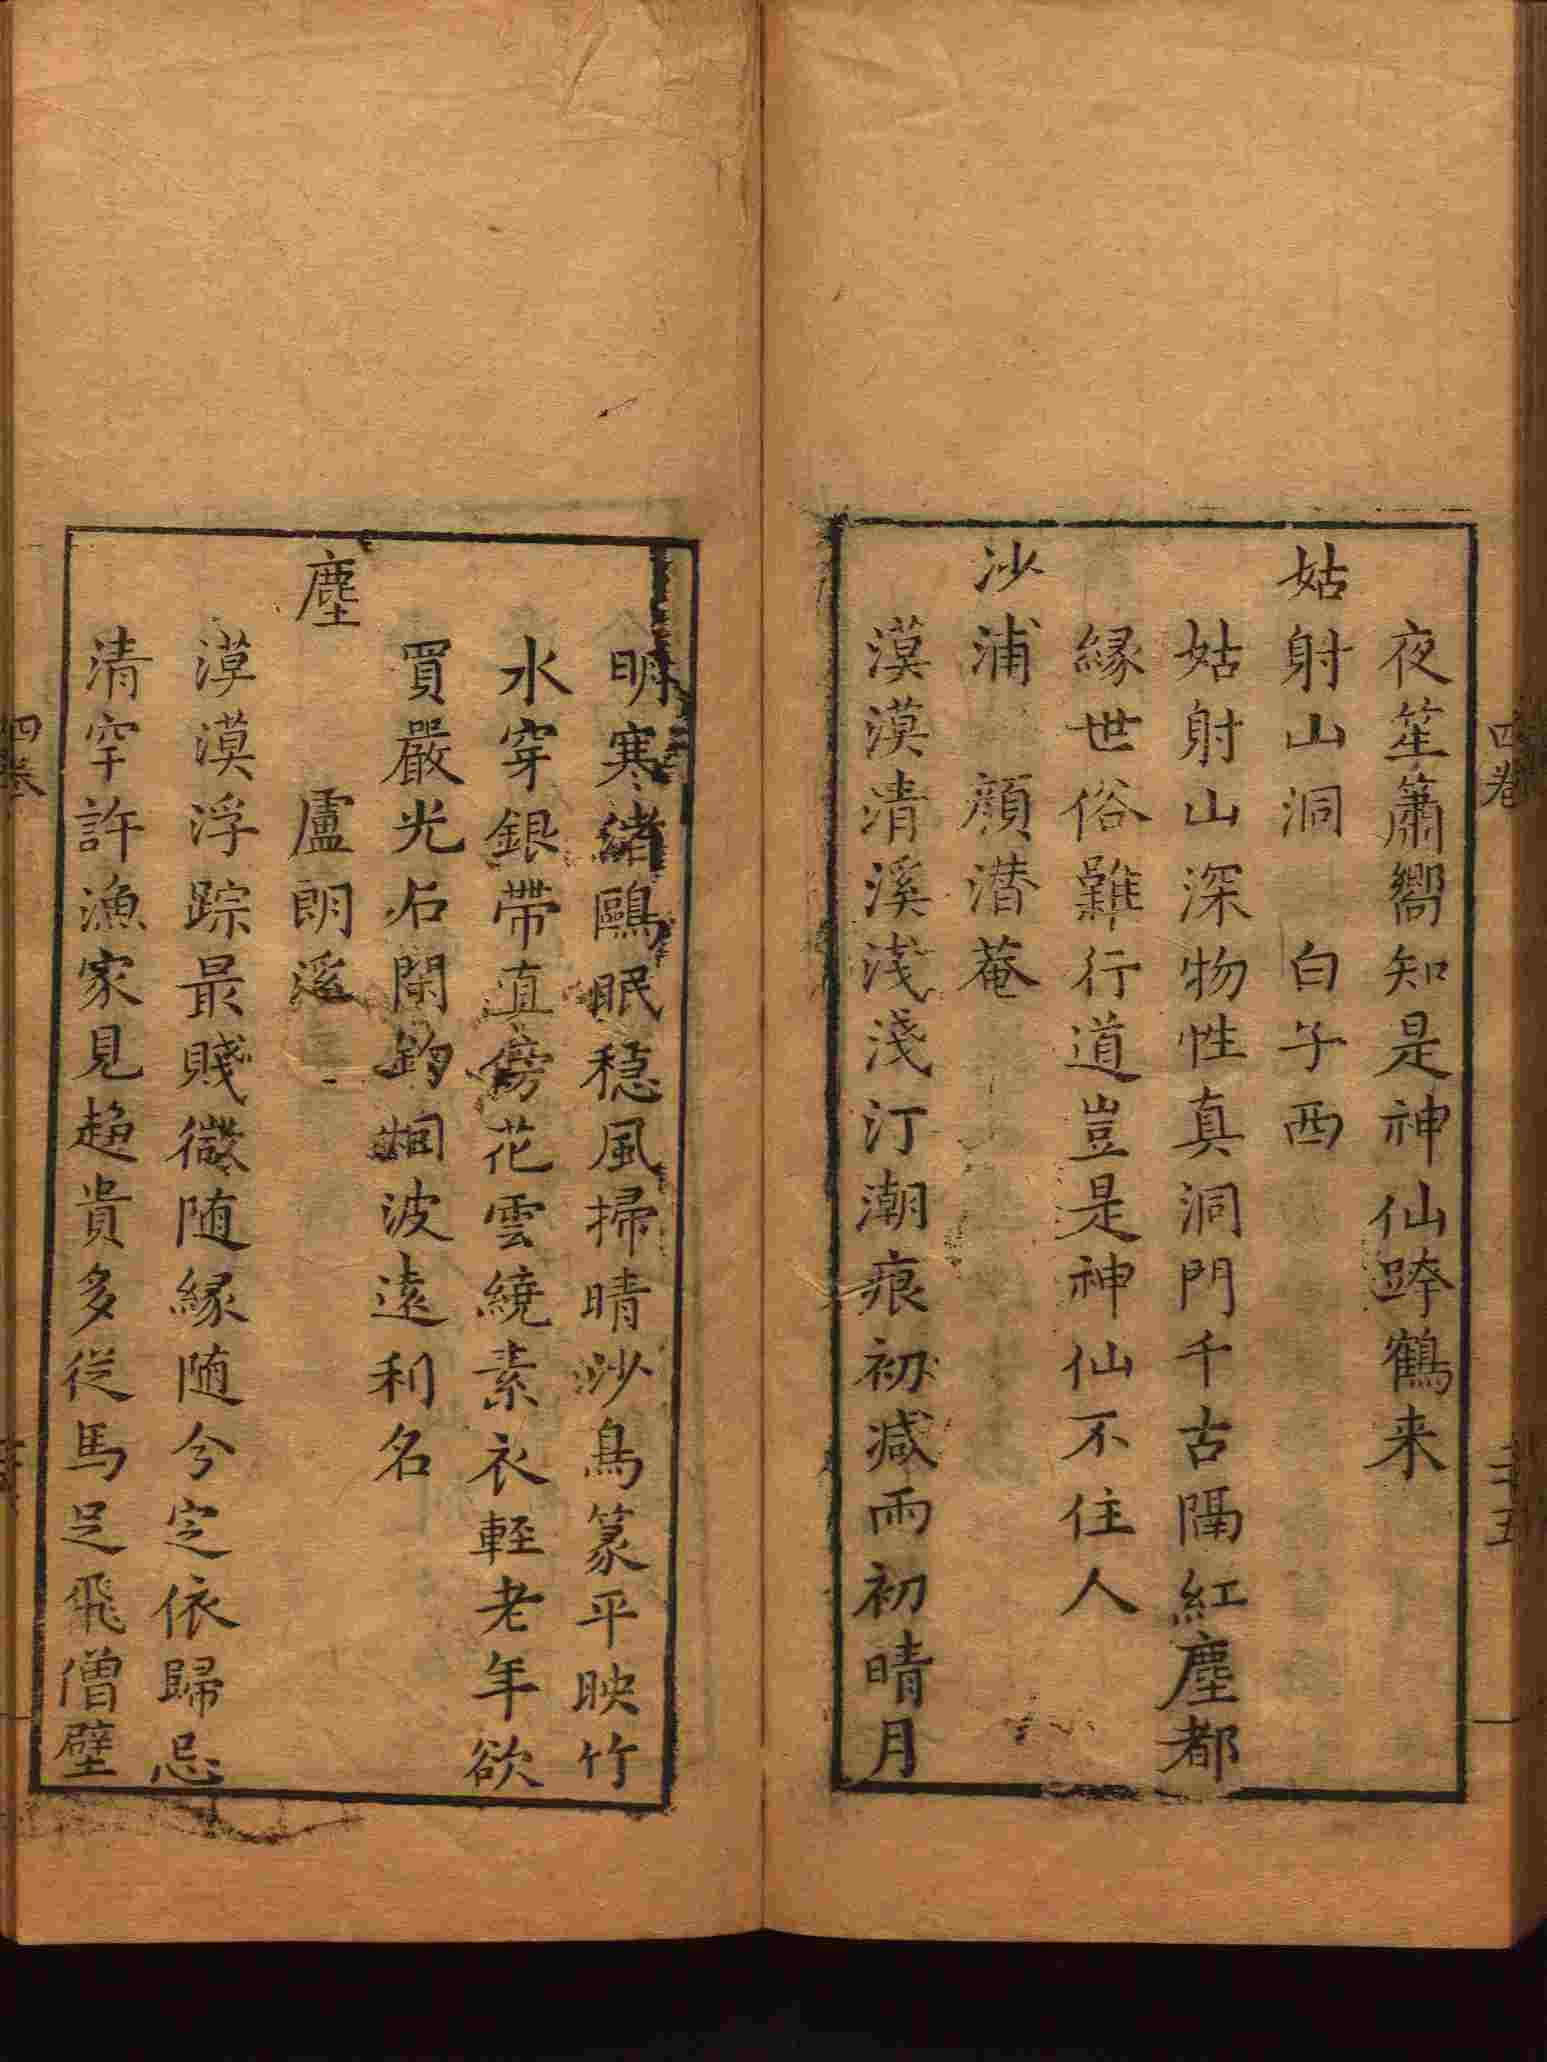 夜笙簫嚮知是神仙跨鶴来
姑射山洞　白子西
姑射山深物性真洞門千古隔紅塵都
縁世俗難行道豈是神仙不住人
沙浦　顔潜菴
漠漠清溪浅淺汀潮痕初減雨初晴月
明寒緒鷗眠穏風掃晴沙鳥篆平映竹
水穿銀帶直傍花雲繞素衣軽老年欲
買嚴光石閑釣烟波遠利名
塵　盧朗溪
漠漠浮踪最賤微随縁随分定依歸忌
清罕許漁家見趋貴多従馬足飛僧壁
四卷
二十五
四卷